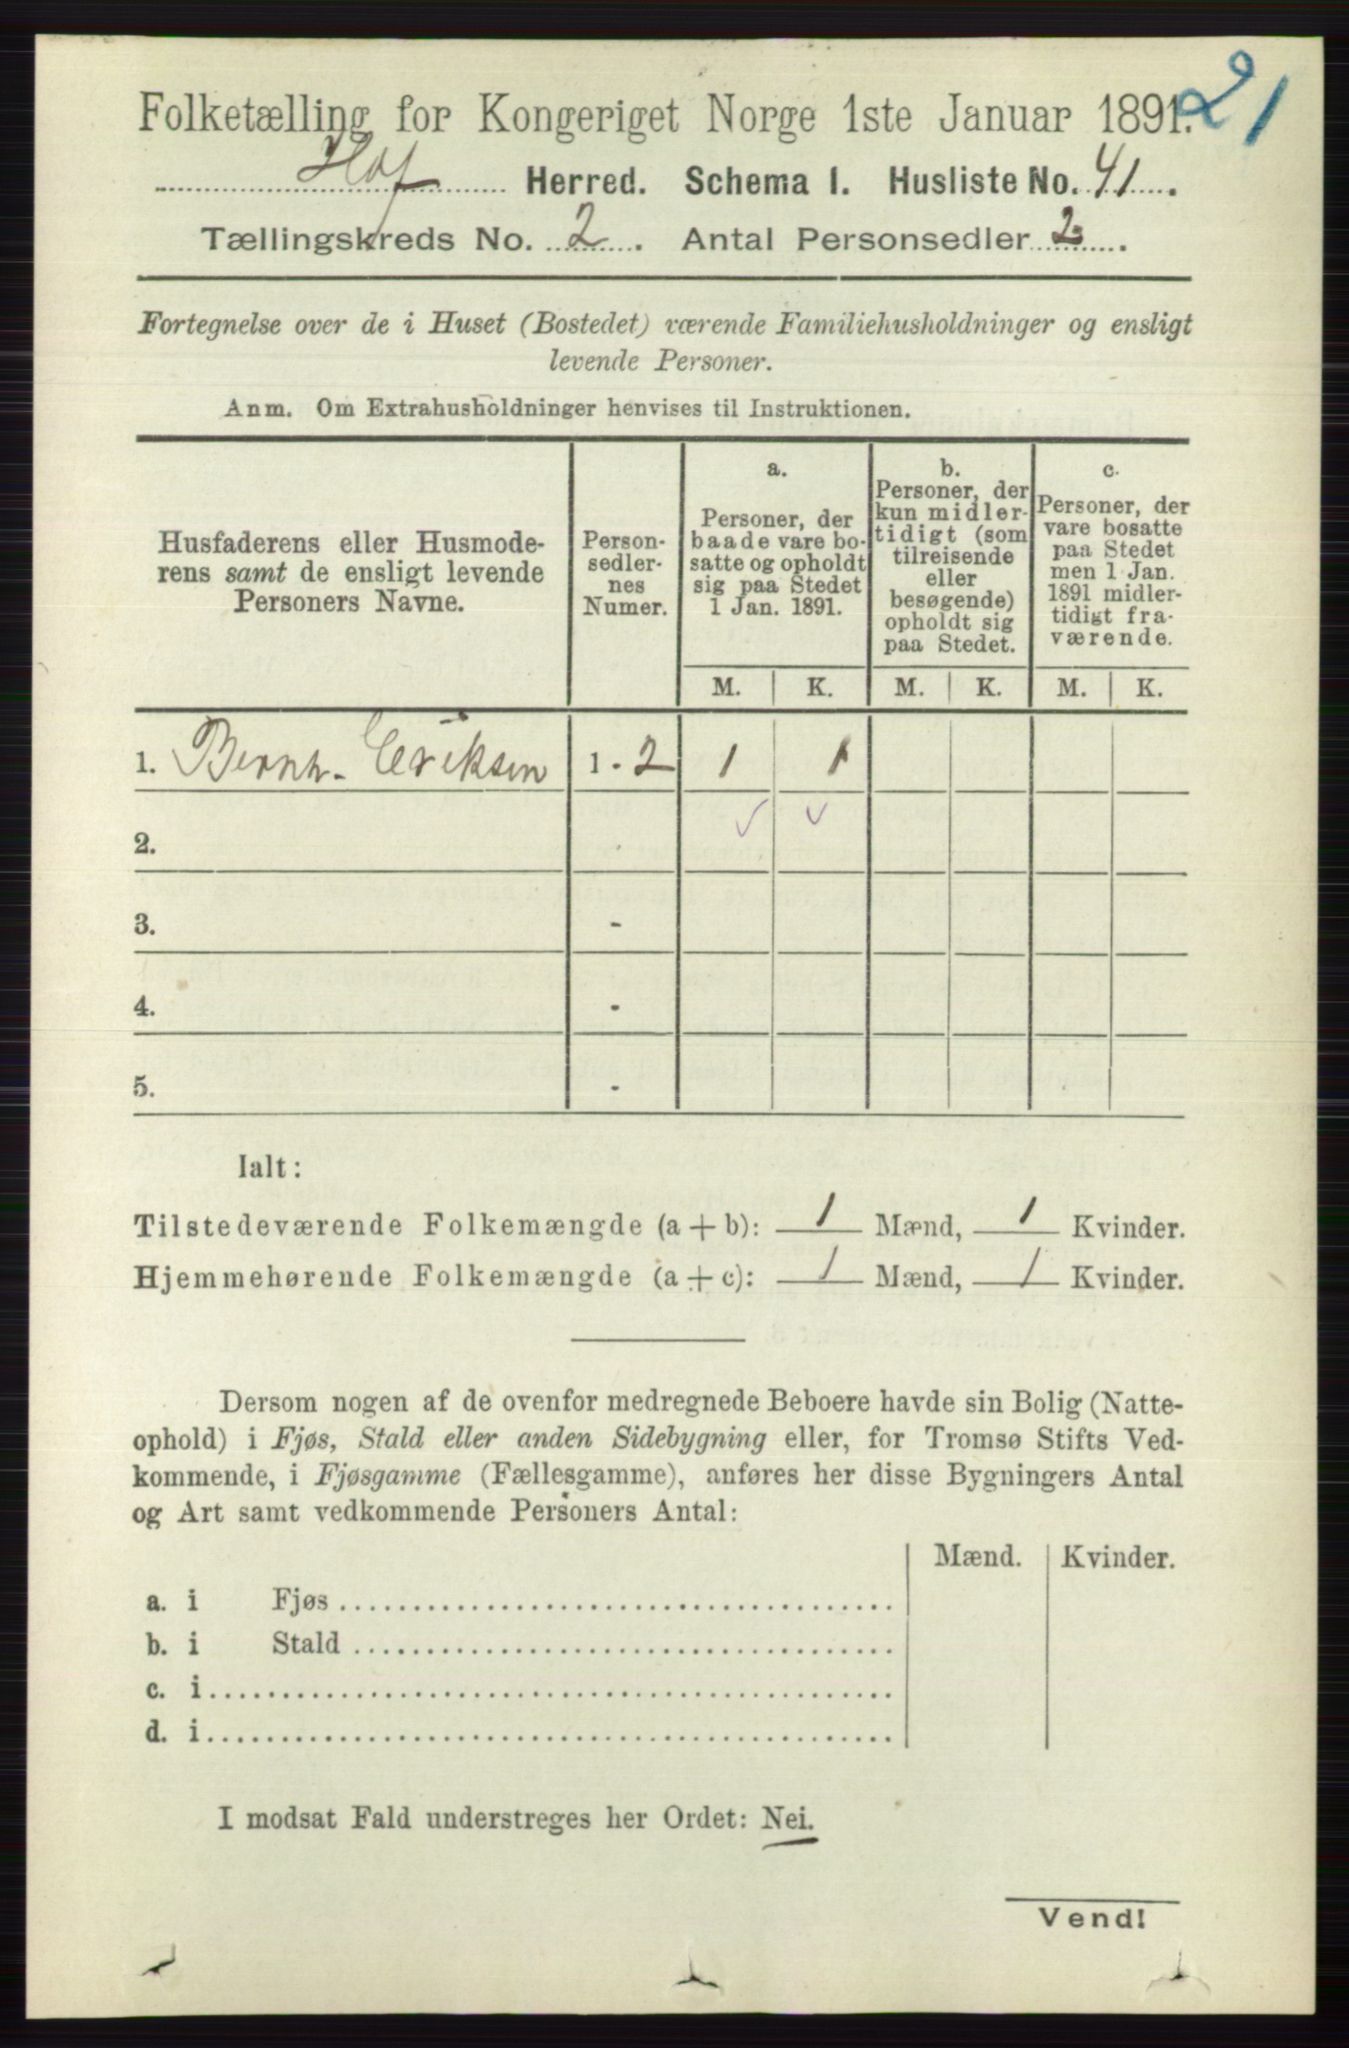 21
Folketælling for Kongeriget Norge 1ste Januar 1891.
Hof Herred. Schema I. Husliste No. 41.
Tællingskreds No. 2. Antal Personsedler 2.
Fortegnelse over de i Huset (Bostedet) værende Familiehusholdninger og ensligt
levende Personer.
Anm. Om Extrahusholdninger henvises til Instruktionen.
Husfaderens eller Husmode-
rens samt de ensligt levende
Personers Navne.
Person-
sedler-
nes
Numer.
a.
Personer, der
baade vare bo-
satte og opholdt
sig paa Stedet
1 Jan. 1891.
b.
Personer, der
kun midler-
tidigt (som
tilreisende
eller
besøgende)
opholdt sig
paa Stedet.
c.
Personer, der
vare bosatte
paa Stedet
men 1 Jan.
1891 midler-
tidigt fra-
værende.
M. K. M. K. M. K.
1. Bernh. Eriksen 1 - 2 1 1
2.
3. -
4. -
5. -
Ialt:
Tilstedeværende Folkemængde (a + b): 1 Mænd, 1 Kvinder.
Hjemmehørende Folkemængde (a + c): 1 Mænd, 1 Kvinder.
Dersom nogen af de ovenfor medregnede Beboere havde sin Bolig (Natte-
ophold) i Fjøs, Stald eller anden Sidebygning eller, for Tromsø Stifts Ved-
kommende, i Fjøsgamme (Fællesgamme), anføres her disse Bygningers Antal
og Art samt vedkommende Personers Antal:
Mænd. Kvinder.
a. i Fjøs
b. i Stald
c. i
d. i
I modsat Fald understreges her Ordet: Nei.
Vend!